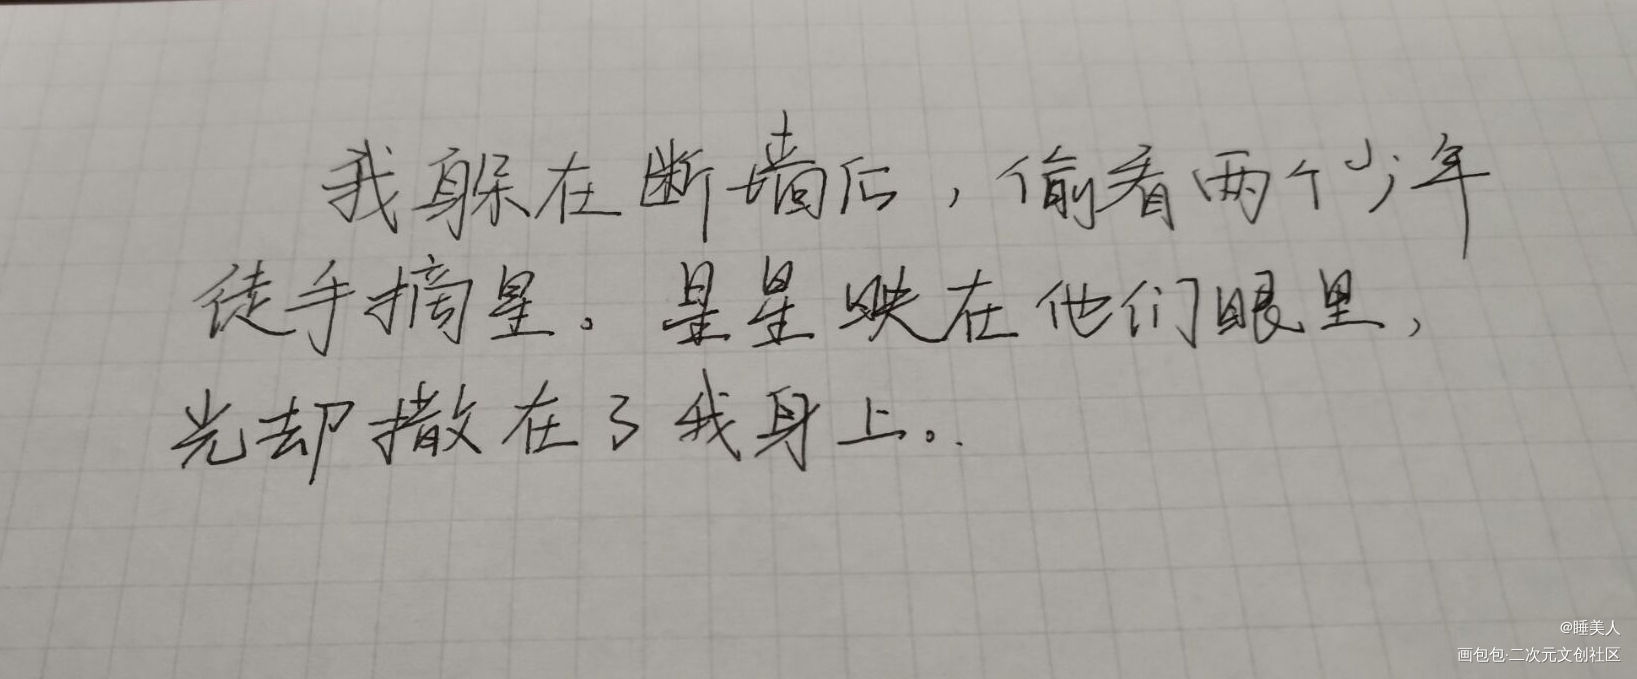 我躲在断墙后，偷看两个少年
徒手摘星。星星映在他们眼里，
光却撒在了我身上。
@睡美人
画包包·二次元文创社区